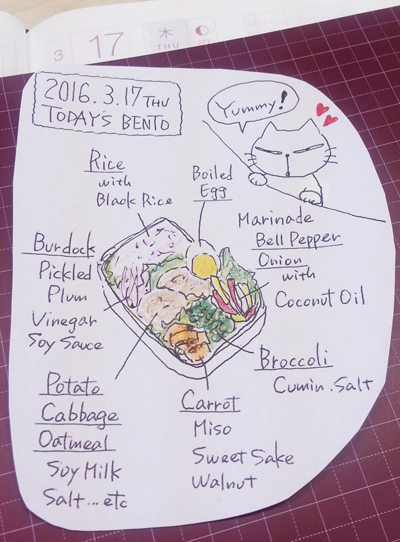 3
17
木
THU
2016.3.17 THU
TODAY'S BENTO
Yummy!
Rice
with
Black Rice
Boiled
Egg
Marinade
Bell Pepper
Onion
with
Coconut Oil
Burdock
Pickled
Plum
Vinegar
Soy Sauce
Broccoli
Cumin. Salt
Potato
Cabbage
Oatmeal
Soy Milk
Salt...etc
Carrot
Miso
Sweet Sake
Walnut